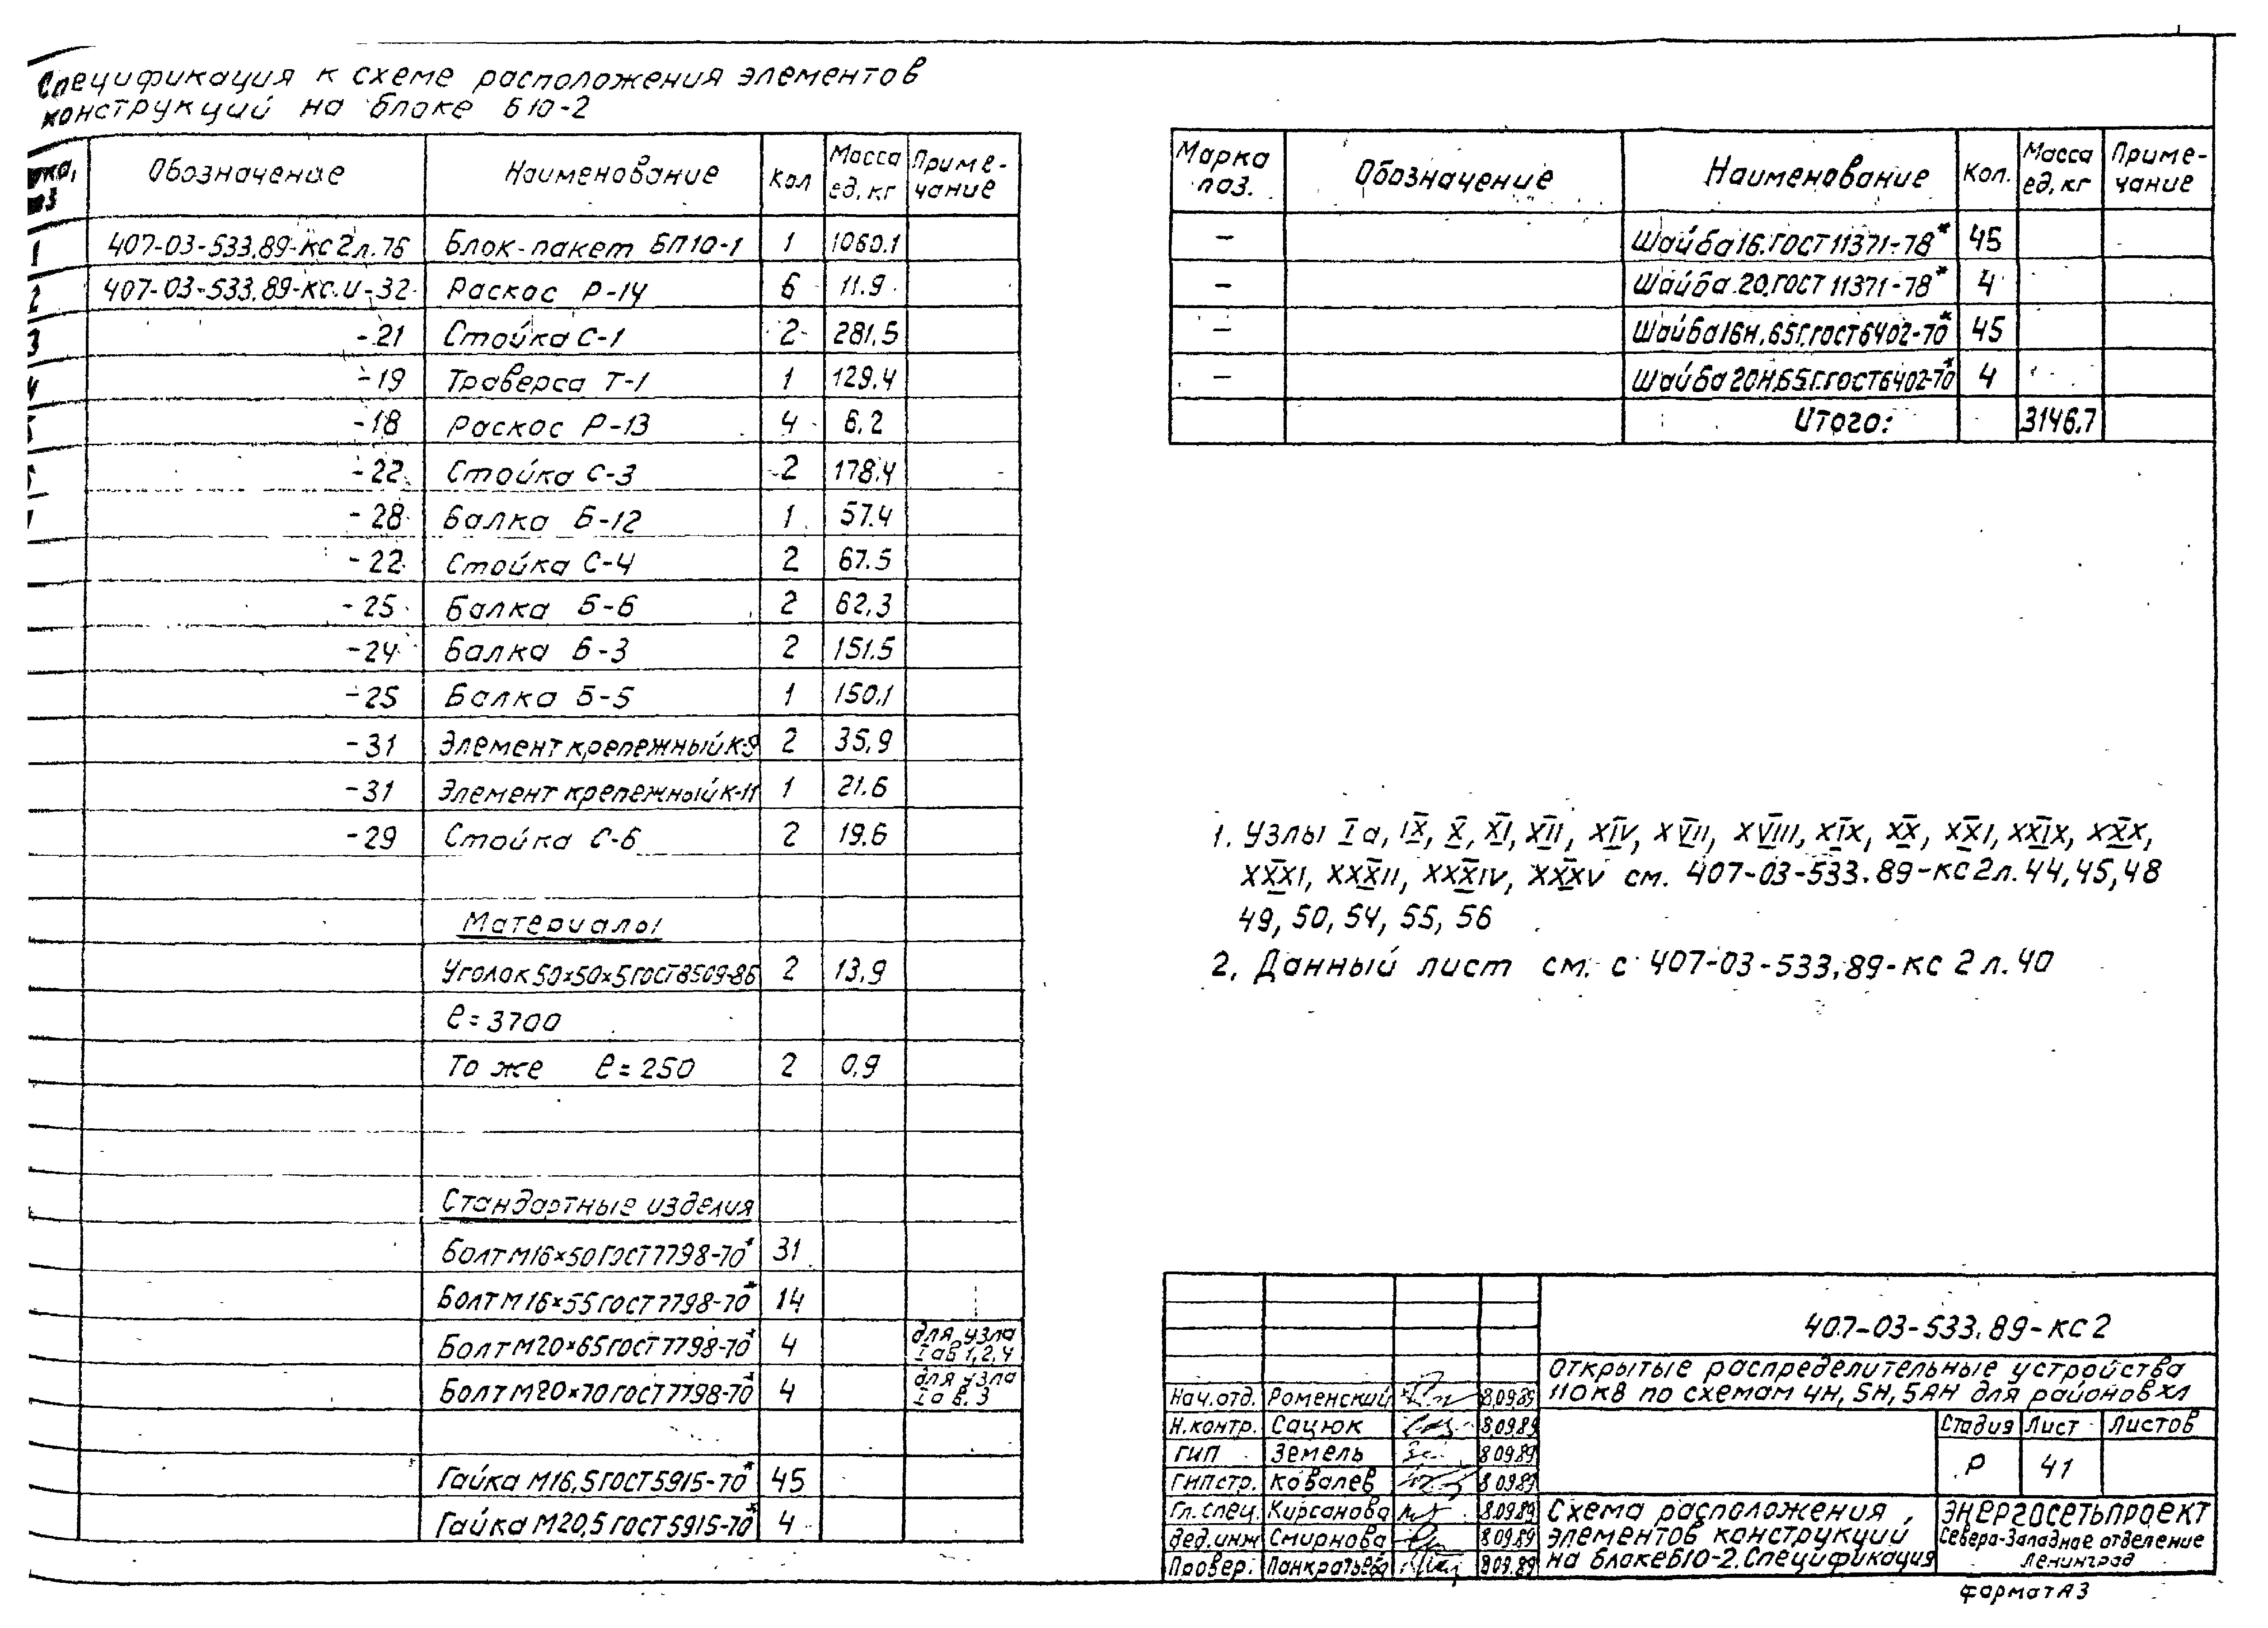 Спецификация к схеме расположения элементов
конструкций на блоке Б10-2
Обозначение Наименование Кол Масса ед, кг Приме-чание
1 407-03-533.89-КС2 л.76 Блок-пакет БП10-1 1 1060.1
2 407-03-533.89-КС.И-32 Раскос Р-14 6 11.9
3 -21 Стойка С-1 2 281.5
4 -19 Траверса Т-1 1 129.4
-18 Раскос Р-13 4 6.2
-22 Стойка С-3 2 178.4
-28 Балка Б-12 1 57.4
-22 Стойка С-4 2 67.5
-25 Балка Б-6 2 62,3
-24 Балка Б-3 2 151.5
-25 Балка Б-5 1 150.1
-31 Элемент крепежный К-9 2 35,9
-31 Элемент крепежный К-11 1 21.6
-29 Стойка С-6 2 19.6
Материалы
Уголок 50×50×5 ГОСТ 8509-86 2 13,9
ℓ=3700
То же ℓ=250 2 0,9
Стандартные изделия
Болт М16×50 ГОСТ 7798-70* 31
Болт М16×55 ГОСТ 7798-70* 14
Болт М20×65 ГОСТ 7798-70* 4 для узла Iав 1,2,4
Болт М20×70 ГОСТ 7798-70* 4 для узла Iа в. 3
Гайка М16,5 ГОСТ 5915-70* 45
Гайка М20,5 ГОСТ 5915-70* 4
Марка поз. Обозначение Наименование Кол. Масса ед, кг Приме-чание
– Шайба 16. ГОСТ 11371-78* 45
– Шайба 20. ГОСТ 11371-78* 4
– Шайба 16Н.65Г. ГОСТ 6402-70* 45
– Шайба 20Н.65Г. ГОСТ 6402-70* 4
Итого: 3146,7
1. Узлы Iа, IX, X, XI, XII, XIV, XVII, XVIII, XIX, XX, XXI, XXIX, XXX,
XXXI, XXXII, XXXIV, XXXV см. 407-03-533.89-КС2 л.44,45,48
49, 50, 54, 55, 56
2. Данный лист см. с 407-03-533.89-КС 2 л.40
407-03-533.89-КС 2
Открытые распределительные устройства
110кв по схемам 4Н, 5Н, 5АН для районов ХЛ
Нач.отд. Роменский 8.09.89
Н.контр. Сацюк 8.09.89
ГИП Земель 8 09.89
ГИПстр. Ковалев 8 09.89
Гл.спец. Кирсанова 8.09.89
Вед.инж Смирнова 8 09.89
Провер. Панкратьева 8 09.89
Стадия Лист Листов
Р 41
Схема расположения
элементов конструкций
на блоке Б10-2. Спецификация
ЭНЕРГОСЕТЬПРОЕКТ
Северо-Западное отделение
Ленинград
Формат А3